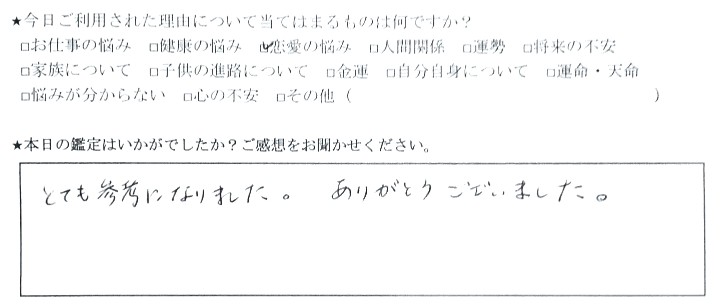 ★今日ご利用された理由について当てはまるものは何ですか？
□お仕事の悩み □健康の悩み ☑恋愛の悩み □人間関係 □運勢 □将来の不安
□家族について □子供の進路について □金運 □自分自身について □運命・天命
□悩みが分からない □心の不安 □その他（ ）
★本日の鑑定はいかがでしたか？ご感想をお聞かせください。
とても参考になりました。 ありがとうございました。